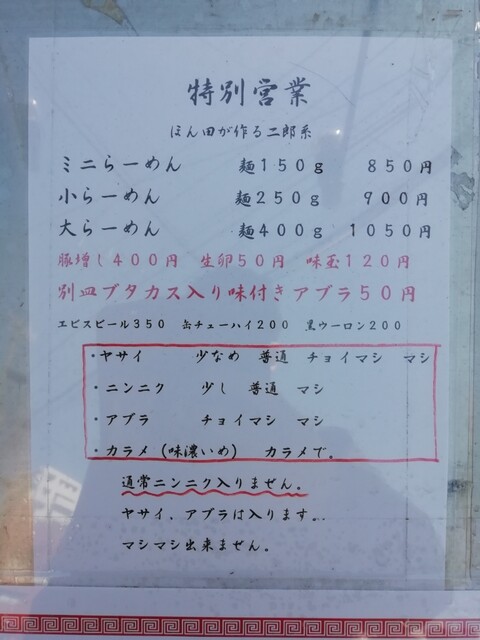 特別営業
ほん田が作る二郎系
ミニらーめん 麺150g 850円
小らーめん 麺250g 900円
大らーめん 麺400g 1050円
豚増し400円 生卵50円 味玉120円
別皿ブタカス入り味付きアブラ50円
エビスビール350 缶チューハイ200 黒ウーロン200
・ヤサイ 少なめ 普通 チョイマシ マシ
・ニンニク 少し 普通 マシ
・アブラ チョイマシ マシ
・カラメ(味濃いめ) カラメで。
通常ニンニク入りません。
ヤサイ、アブラは入ります。
マシマシ出来ません。